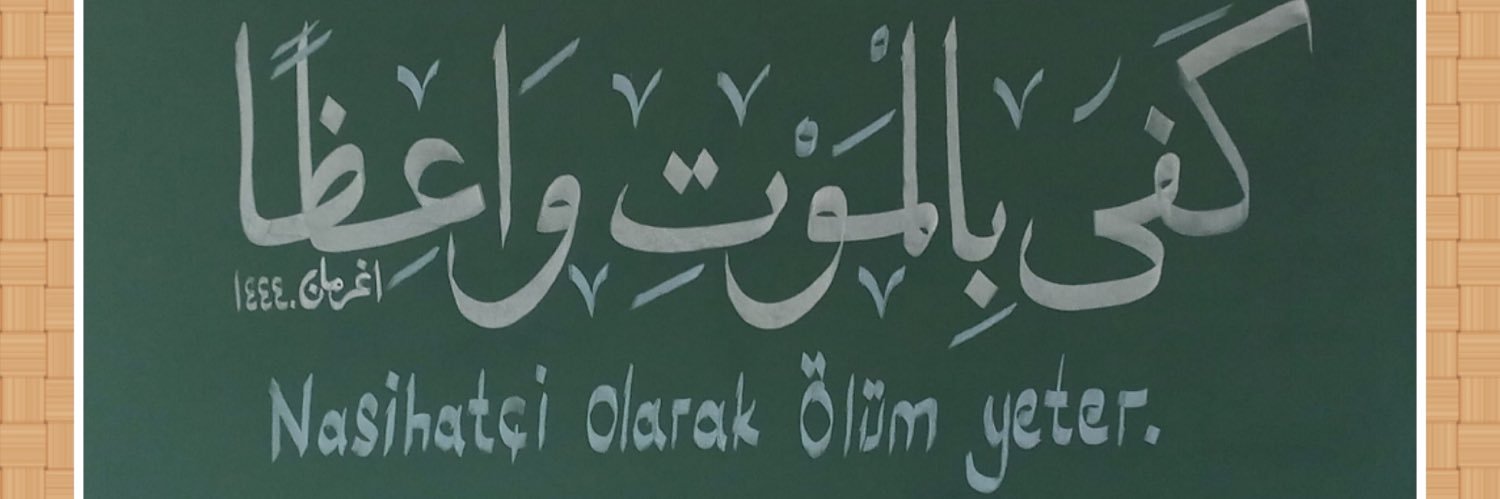 كَفَى بِالْمَوْتِ وَاعِظًا
اغرمان. ١٤٤٤
Nasihatçi olarak Ölüm yeter.